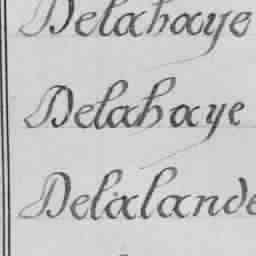 Delahaye
Delahaye
Delalande